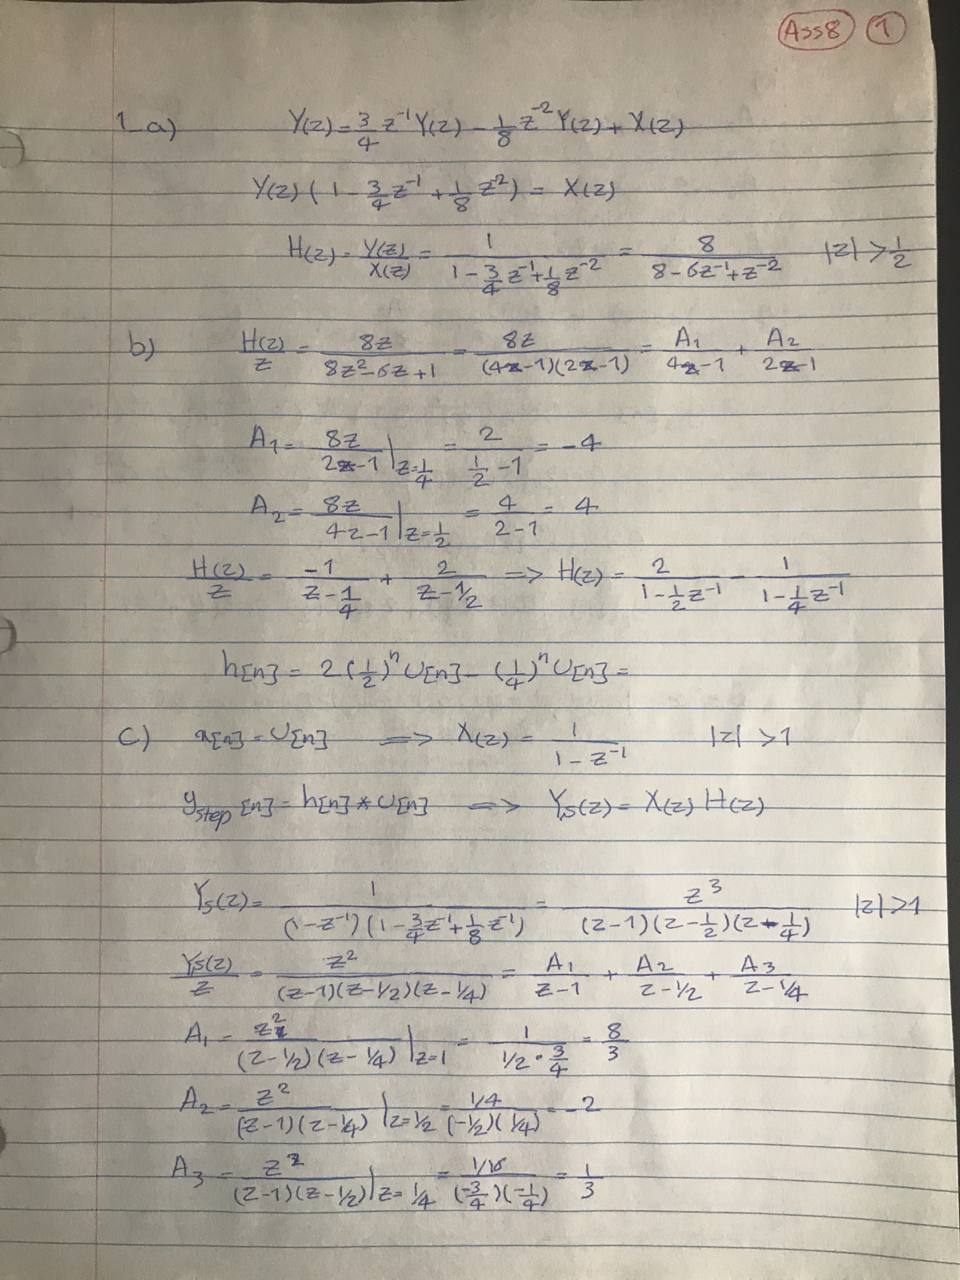 Ass8 1
1-a) Y(z) = 3/4 z^-1 Y(z) - 1/8 z^-2 Y(z) + X(z)
Y(z) ( 1 - 3/4 z^-1 + 1/8 z^-2 ) = X(z)
H(z) = Y(z)/X(z) = 1/(1 - 3/4 z^-1 + 1/8 z^-2) = 8/(8 - 6z^-1 + z^-2) |z| > 1/2
b) H(z)/z = 8z/(8z^2 - 6z + 1) = 8z/((4z-1)(2z-1)) = A1/(4z-1) + A2/(2z-1)
A1 = 8z/(2z-1) |z=1/4 = 2/(1/2 - 1) = -4
A2 = 8z/(4z-1) |z=1/2 = 4/(2-1) = 4
H(z)/z = -1/(z - 1/4) + 2/(z - 1/2) => H(z) = 2/(1 - 1/2 z^-1) - 1/(1 - 1/4 z^-1)
h[n] = 2 (1/2)^n U[n] - (1/4)^n U[n] =
c) x[n] = U[n] => X(z) = 1/(1 - z^-1) |z| > 1
y_step[n] = h[n] * U[n] => Ys(z) = X(z) H(z)
Ys(z) = 1/((1 - z^-1)(1 - 3/4 z^-1 + 1/8 z^-1)) = z^3/((z-1)(z - 1/2)(z - 1/4)) |z| > 1
Ys(z)/z = z^2/((z-1)(z-1/2)(z-1/4)) = A1/(z-1) + A2/(z-1/2) + A3/(z-1/4)
A1 = z^2/((z-1/2)(z-1/4)) |z=1 = 1/(1/2 * 3/4) = 8/3
A2 = z^2/((z-1)(z-1/4)) |z=1/2 = 1/4/((-1/2)(1/4)) = -2
A3 = z^2/((z-1)(z-1/2)) |z=1/4 = 1/16/((-3/4)(-1/4)) = 1/3